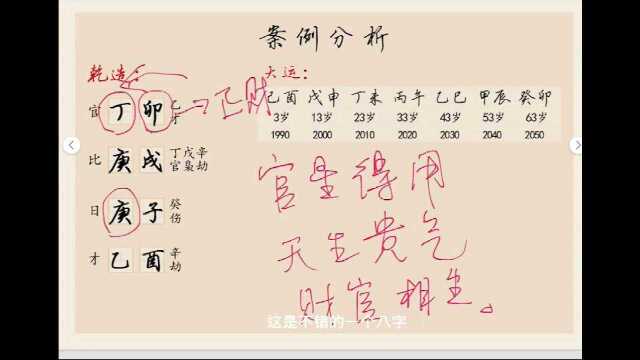 案例分析
乾造： 大运：
正财
官 丁 卯 乙才
己酉 戊申 丁未 丙午 乙巳 甲辰 癸卯
3岁 13岁 23岁 33岁 43岁 53岁 63岁
1990 2000 2010 2020 2030 2040 2050
比 庚 戌 丁戊辛
官枭劫
日 庚 子 癸伤
才 乙 酉 辛劫
官星得用
天生贵气
财官相生。
这是不错的一个八字